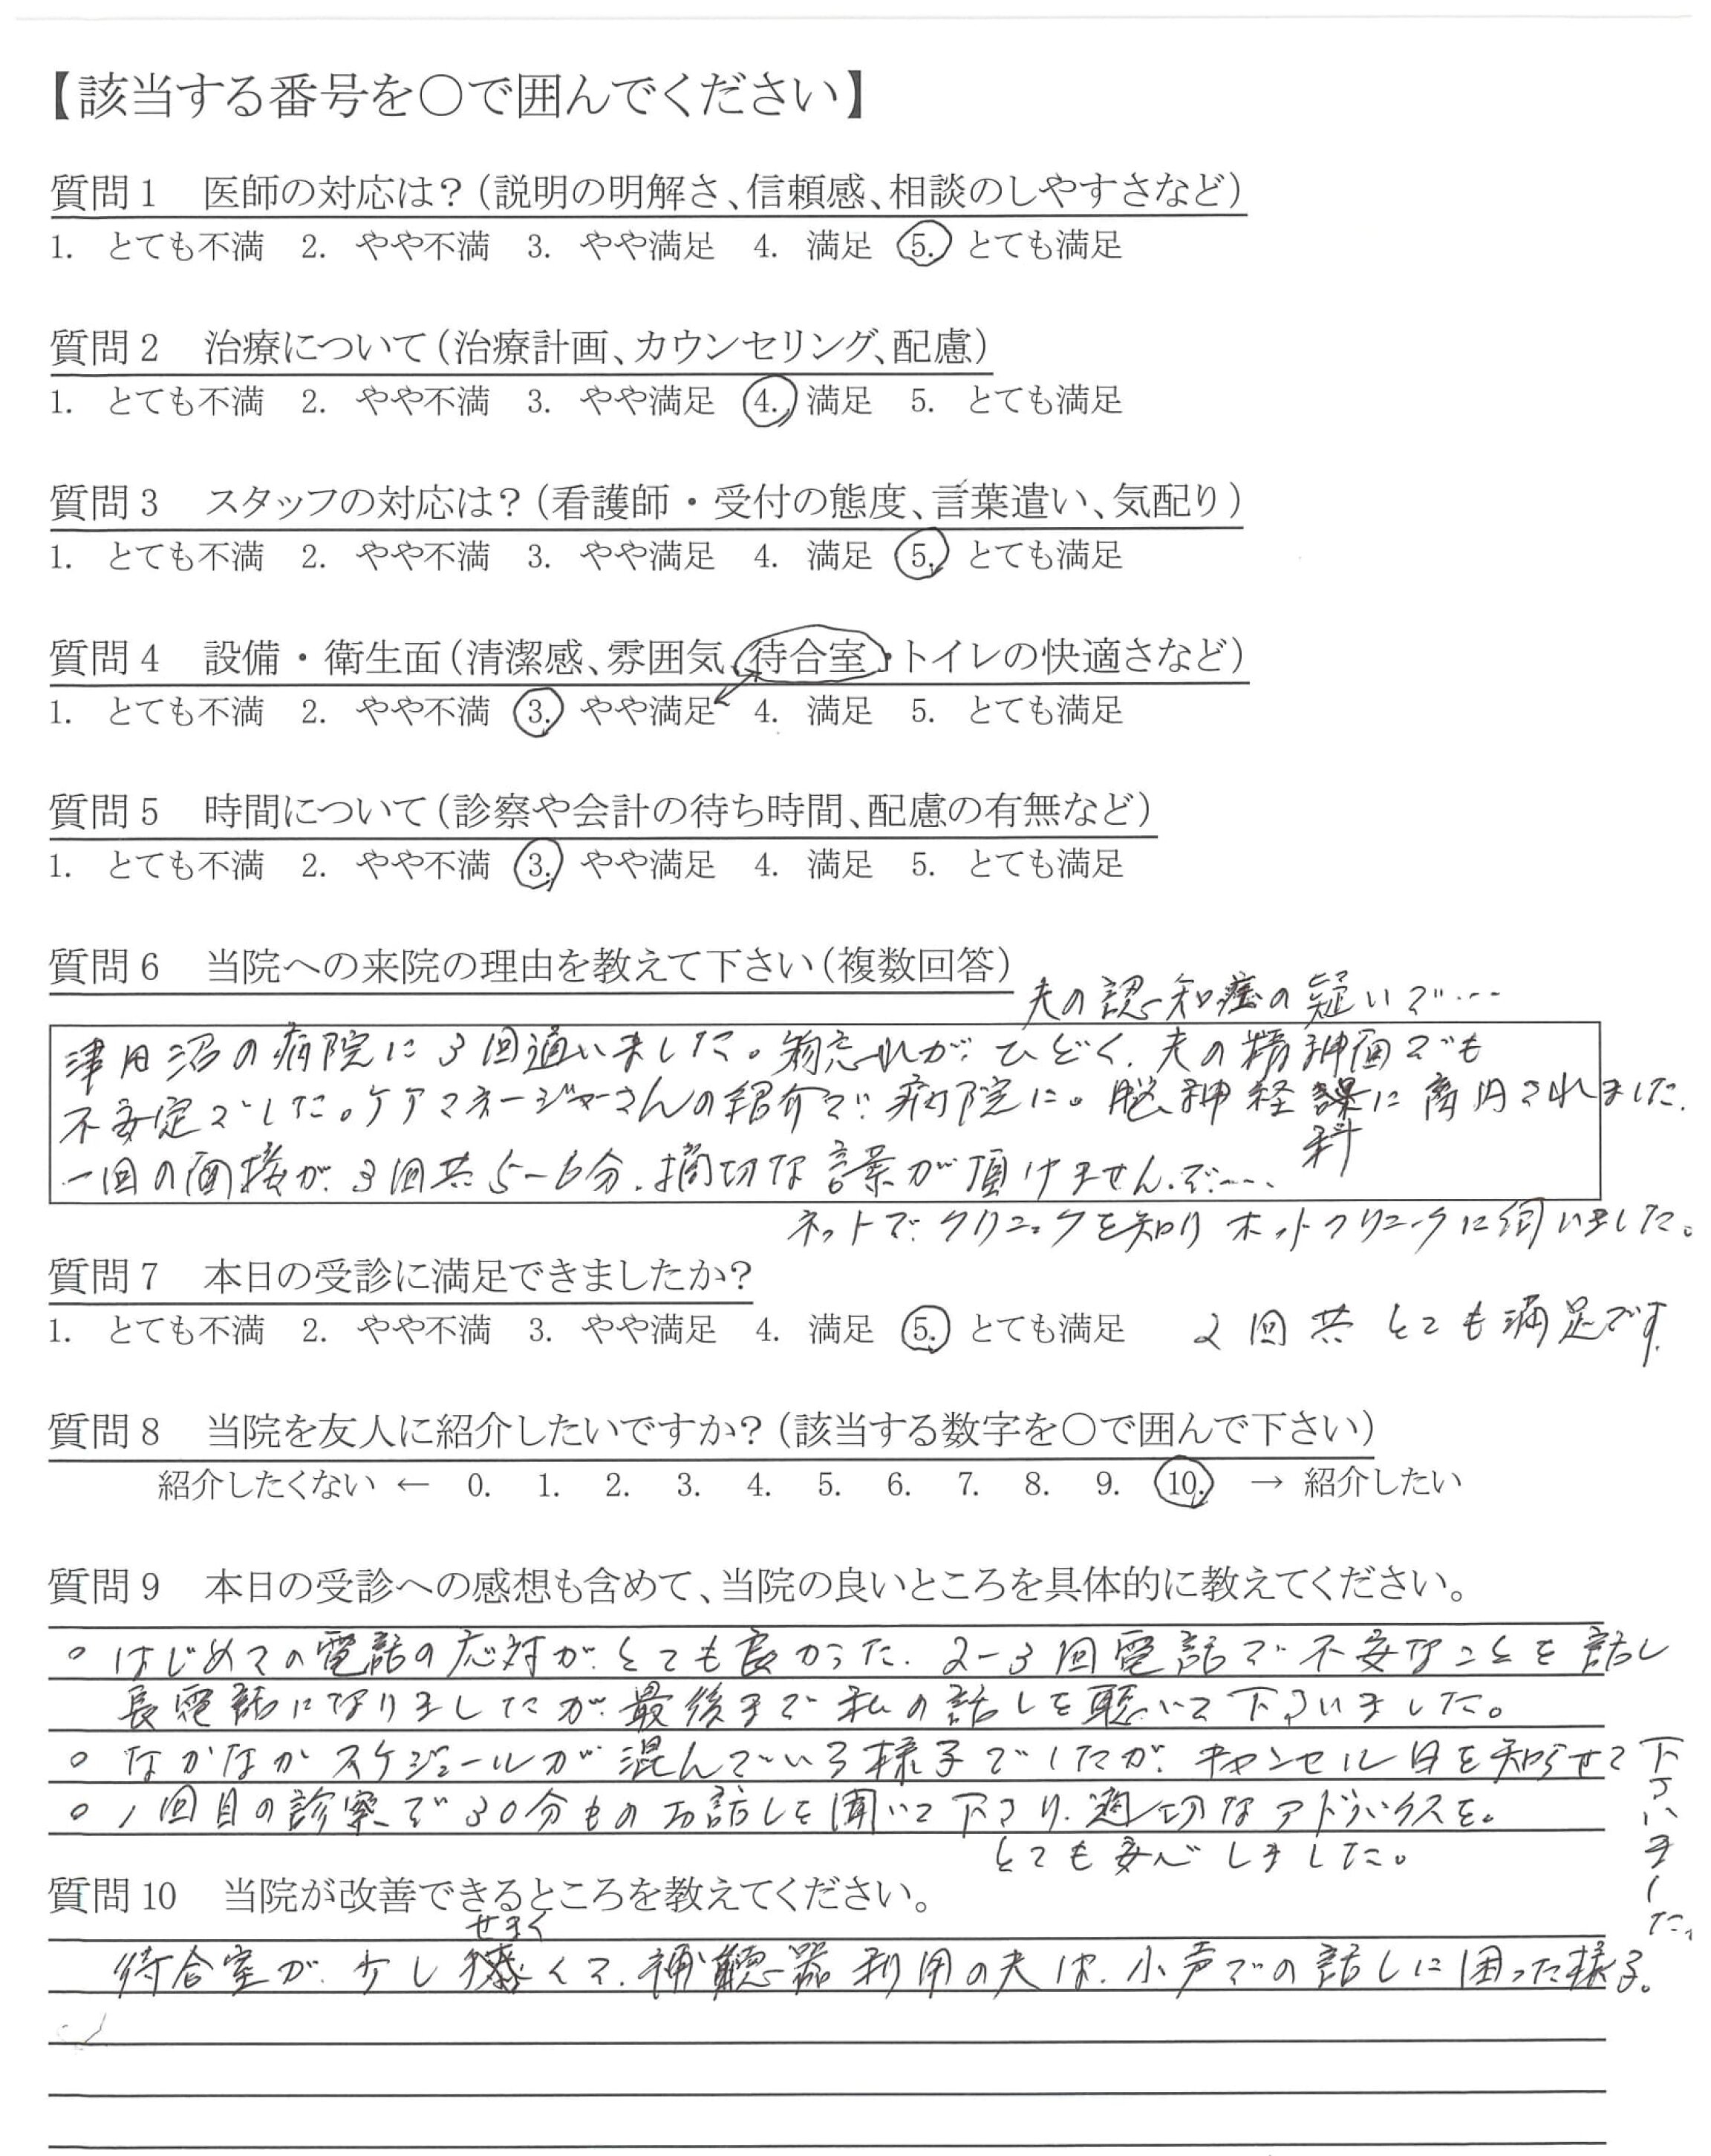 【該当する番号を○で囲んでください】
質問1　医師の対応は？（説明の明解さ、信頼感、相談のしやすさなど）
1. とても不満　2. やや不満　3. やや満足　4. 満足　5. とても満足
質問2　治療について（治療計画、カウンセリング、配慮）
1. とても不満　2. やや不満　3. やや満足　4. 満足　5. とても満足
質問3　スタッフの対応は？（看護師・受付の態度、言葉遣い、気配り）
1. とても不満　2. やや不満　3. やや満足　4. 満足　5. とても満足
質問4　設備・衛生面（清潔感、雰囲気、待合室・トイレの快適さなど）
1. とても不満　2. やや不満　3. やや満足　4. 満足　5. とても満足
質問5　時間について（診察や会計の待ち時間、配慮の有無など）
1. とても不満　2. やや不満　3. やや満足　4. 満足　5. とても満足
質問6　当院への来院の理由を教えて下さい（複数回答）
夫の認知症の疑いで…
津田沼の病院に3回通いました。物忘れがひどく、夫の精神面でも
不安定でした。ケアマネージャーさんの紹介で病院に。脳神経科に されました。
一回の面接が3回共5-6分、適切な言葉が頂けませんで…
ネットでクリニックを知りホットクリニックに伺いました。
質問7　本日の受診に満足できましたか？
1. とても不満　2. やや不満　3. やや満足　4. 満足　5. とても満足　2回共とても満足です。
質問8　当院を友人に紹介したいですか？（該当する数字を○で囲んで下さい）
紹介したくない ← 0. 1. 2. 3. 4. 5. 6. 7. 8. 9. 10. → 紹介したい
質問9　本日の受診への感想も含めて、当院の良いところを具体的に教えてください。
○はじめての電話の応対がとても良かった。2-3回電話で不安なことを話し
長電話になりましたが最後まで私の話しを聴いて下さいました。
○なかなかスケジュールが混んでいる様子でしたが、キャンセル日を知らせて下さいました。
○1回目の診察で30分ものお話しを聞いて下さり、適切なアドバイスを。
とても安心しました。
質問10　当院が改善できるところを教えてください。
せまく
待合室が少し くて、補聴器利用の夫は、小声での話しに困った様子。